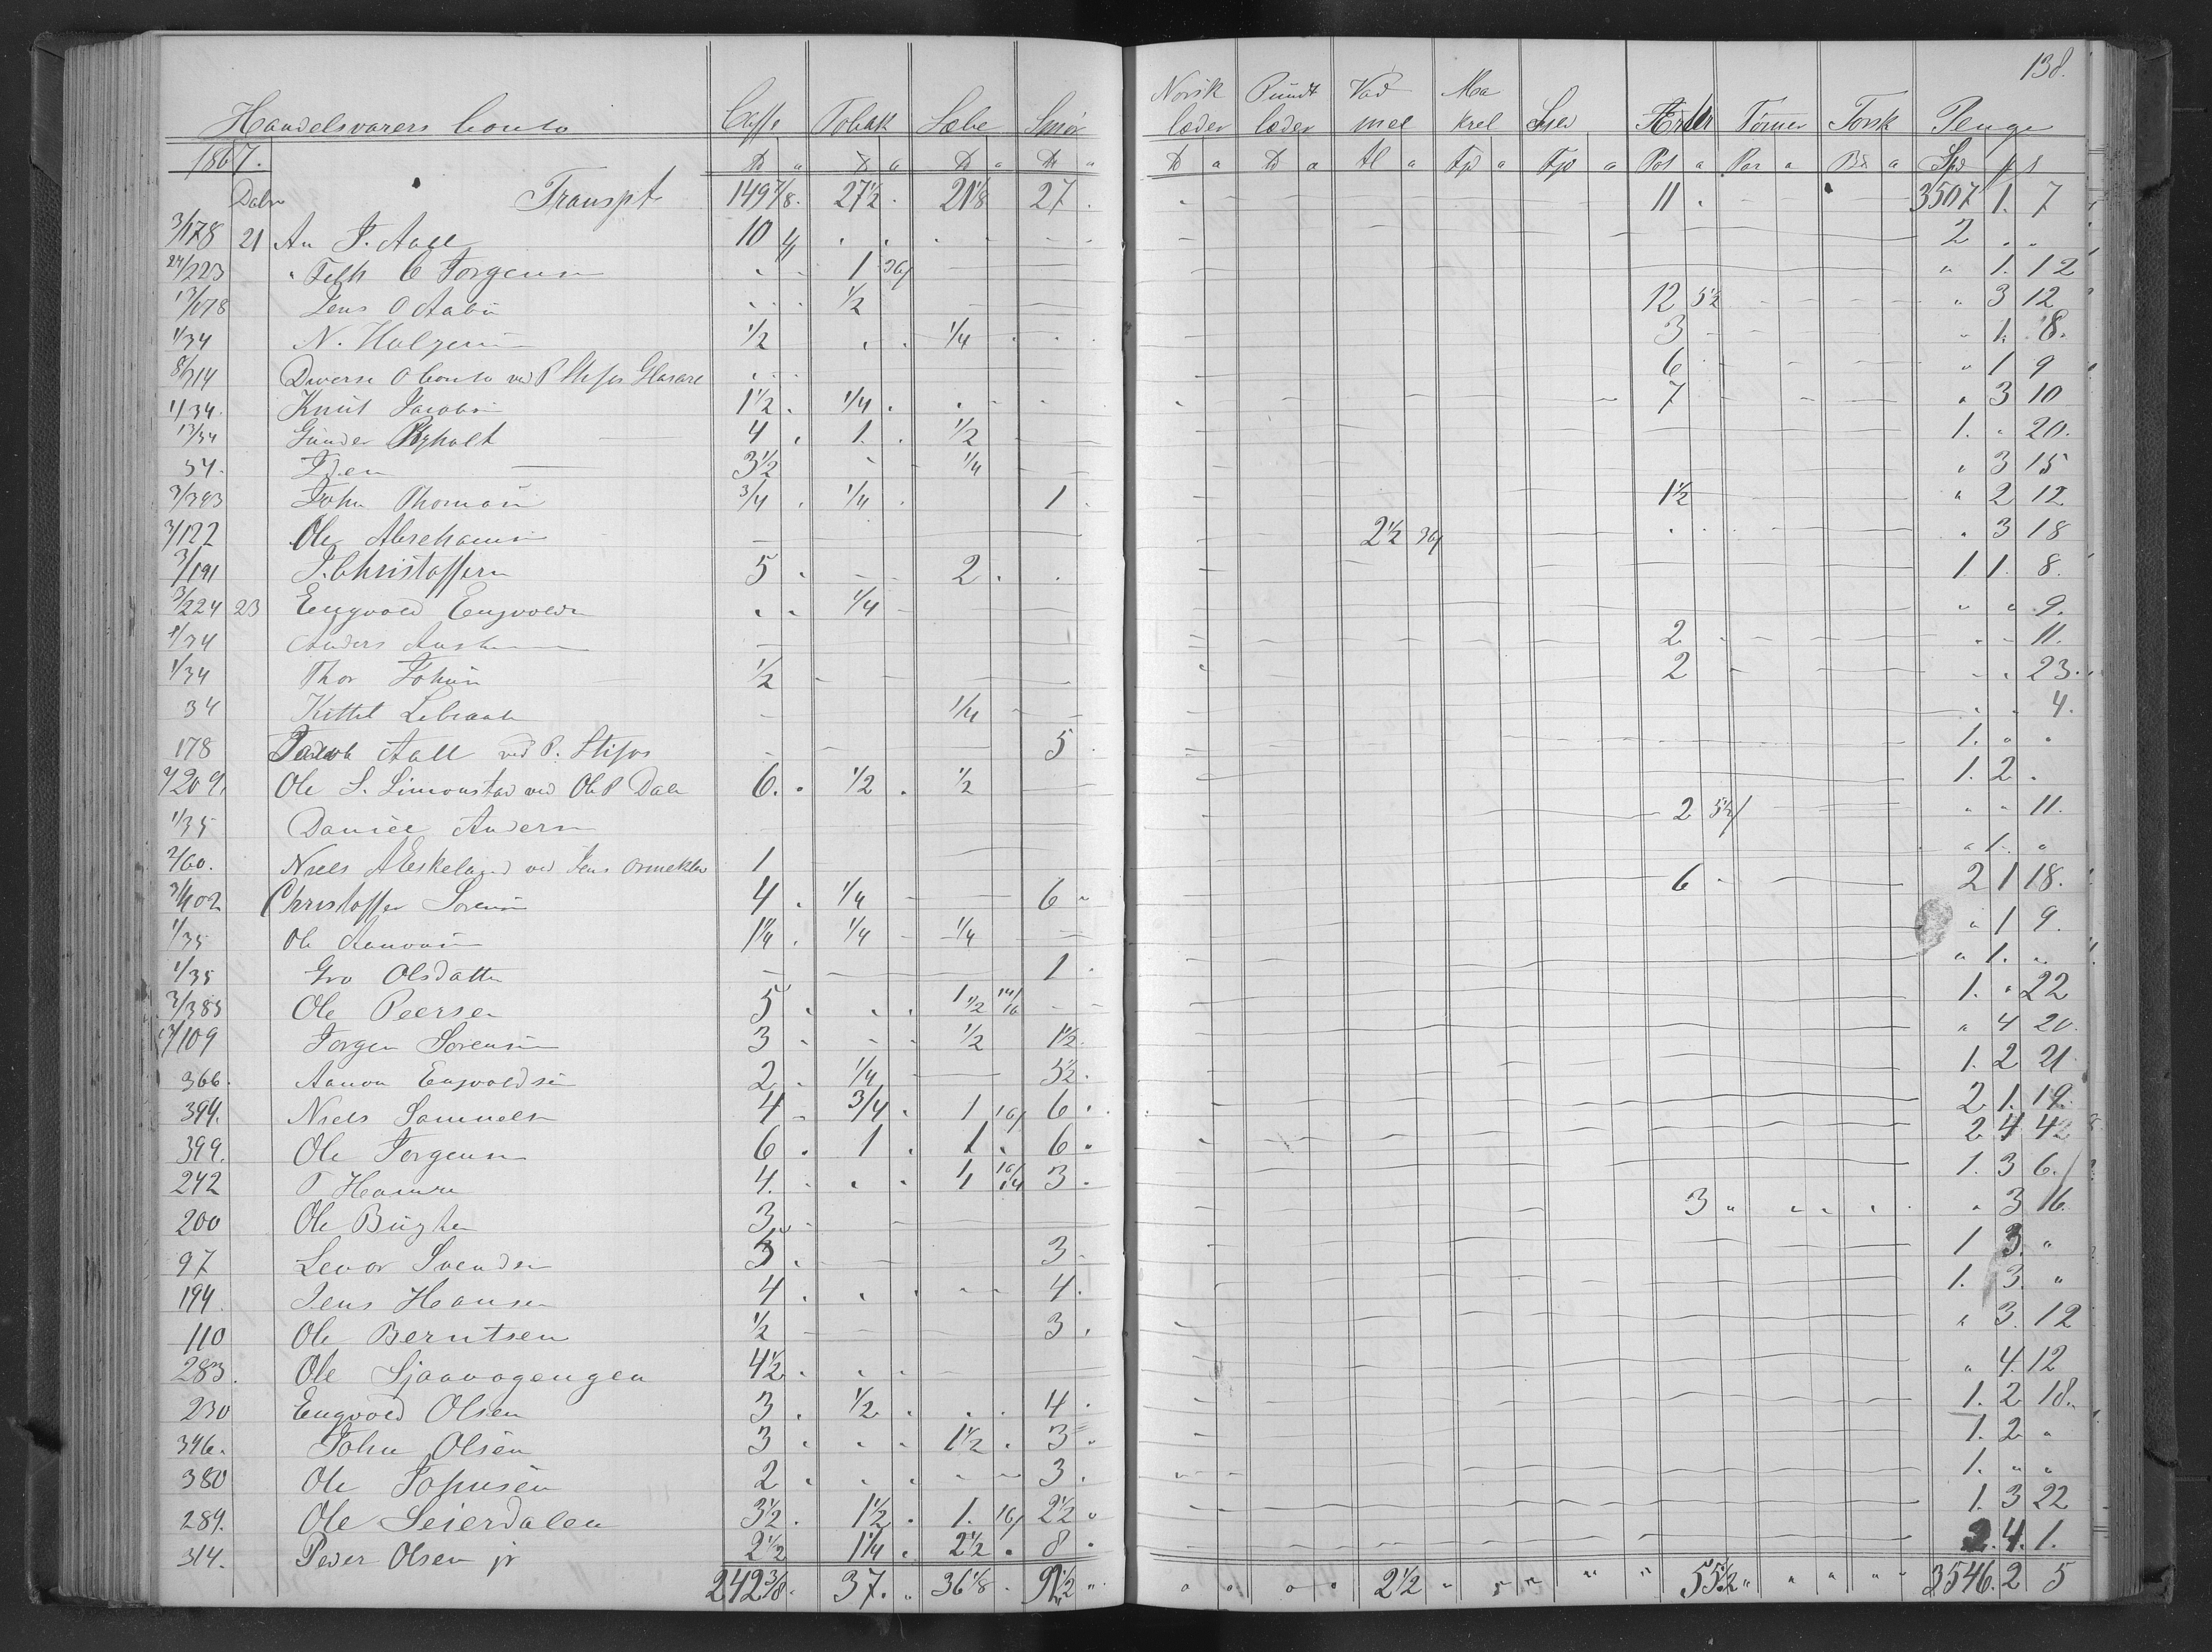 138.
Handelsvarers Conto Caffe Tobak Sæbe Smør Norsk læder Pundt læder Vad mel Ma krel Tømer Torsk Penge
1867. ℔ a ℔ a ℔ a ℔ " ℔ a ℔ a Al a a a Pot a Par a a Spd ß
Transpt 149 7/8 27 1/2 21 1/8 27 11 3507 1. 7
3/178 21 An J. Aall 10 2 " "
24/223 " C Jorgensen 1 36/ " 1. 12
13/178 Jens O 1/2 12 5 1/2 " 3 12
1/34 N. 1/2 1/4 3 " 1. 8.
8/214 Diverse Conto ved P 6 " 1 9
1/34. Knut Jacobs 1 1/2 1/4 7 " 3 10
13/34 Gunder 4 1. 1/2 1. " 20.
34. Idem 3 1/2 1/4 " 3 15
3/393 John Thomas 3/4 1/4 1 1 1/2 " 2 12
3/122 Ole Abrehams 2 1/2 36/ " 3 18
3/191 J. Christoffern 5 2 1. 1. 8.
3/224 23 Engvold Engvolds 1/4 " " 9.
1/34 Anders 2 " " 11.
1/34 Thor Johns 1/2 2 " " 23.
34 Kittel 1/4 " " 4.
178 Jacob Aall ved P. 5 1. " "
3/209. Ole S. Simonstad ved Ole P Dale 6. 1/2 1/2 1. 2 "
1/35 Daniel Anders 2 5 1/2/ " " 11.
3/60. Niels A Eskeland ved Jens 1 " 1. "
3/402 Christoffer Sorens 4 1/4 6 6 2 1 18.
1/35 Ole Aanons 1 1/4 1/4 1/4 " 1 9.
1/35 Gro Olsdatter 1 " 1. "
3/385 Ole Peersen 5 1 1/2 14/16 1. " 22
3/109 Jorgen Sorensen 3 1/2 1 1/2 " 4 20.
366. Aanon Engvoldsen 2 1/4 3 1/2 1. 2 21
394. Niels Samuels 4 3/4 1 16/ 6 2 1. 19.
399. Ole Jorgensen 6 1 1 6 2 4 4
242 T 4. 1 3 1. 3 6.
200 Ole 3 3 " 3 16
97 Levor Svends 3 3 1 3. "
194 Jens Hansen 4 4. 1. 3. "
110 Ole Berntsen 1/2 3 " 3. 12
283. Ole Sjaavogengen 4 1/2 " 4. 12
230 Engvold Olsen 3 1/2 4 1. 2 18.
346. John Olsen 3 1 1/2 3 1. 2 "
380 Ole Johnsen 2 3. 1. " "
289. Ole Seierdalen 3 1/2 1 1/2 1. 16/ 2 1/2 1. 3 22
314. Peder Olsen jr 2 1/2 1 1/4 2 1/2 8 2. 4. 1.
242 3/8 37. 36 1/8 91 1/2 2 1/2 55 1/2 3546. 2 5